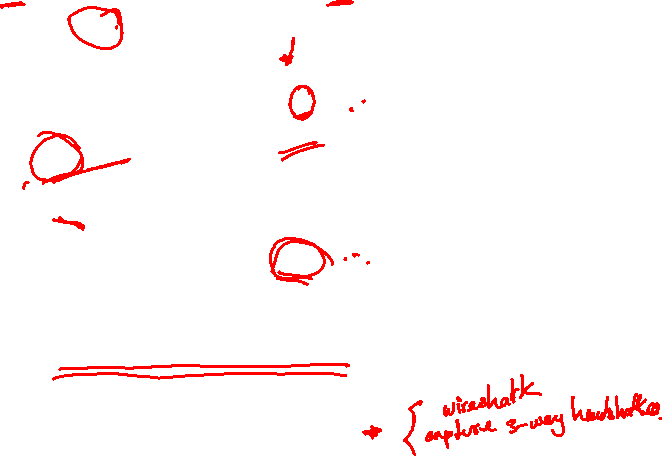 wireshark
capture 3-way handshake